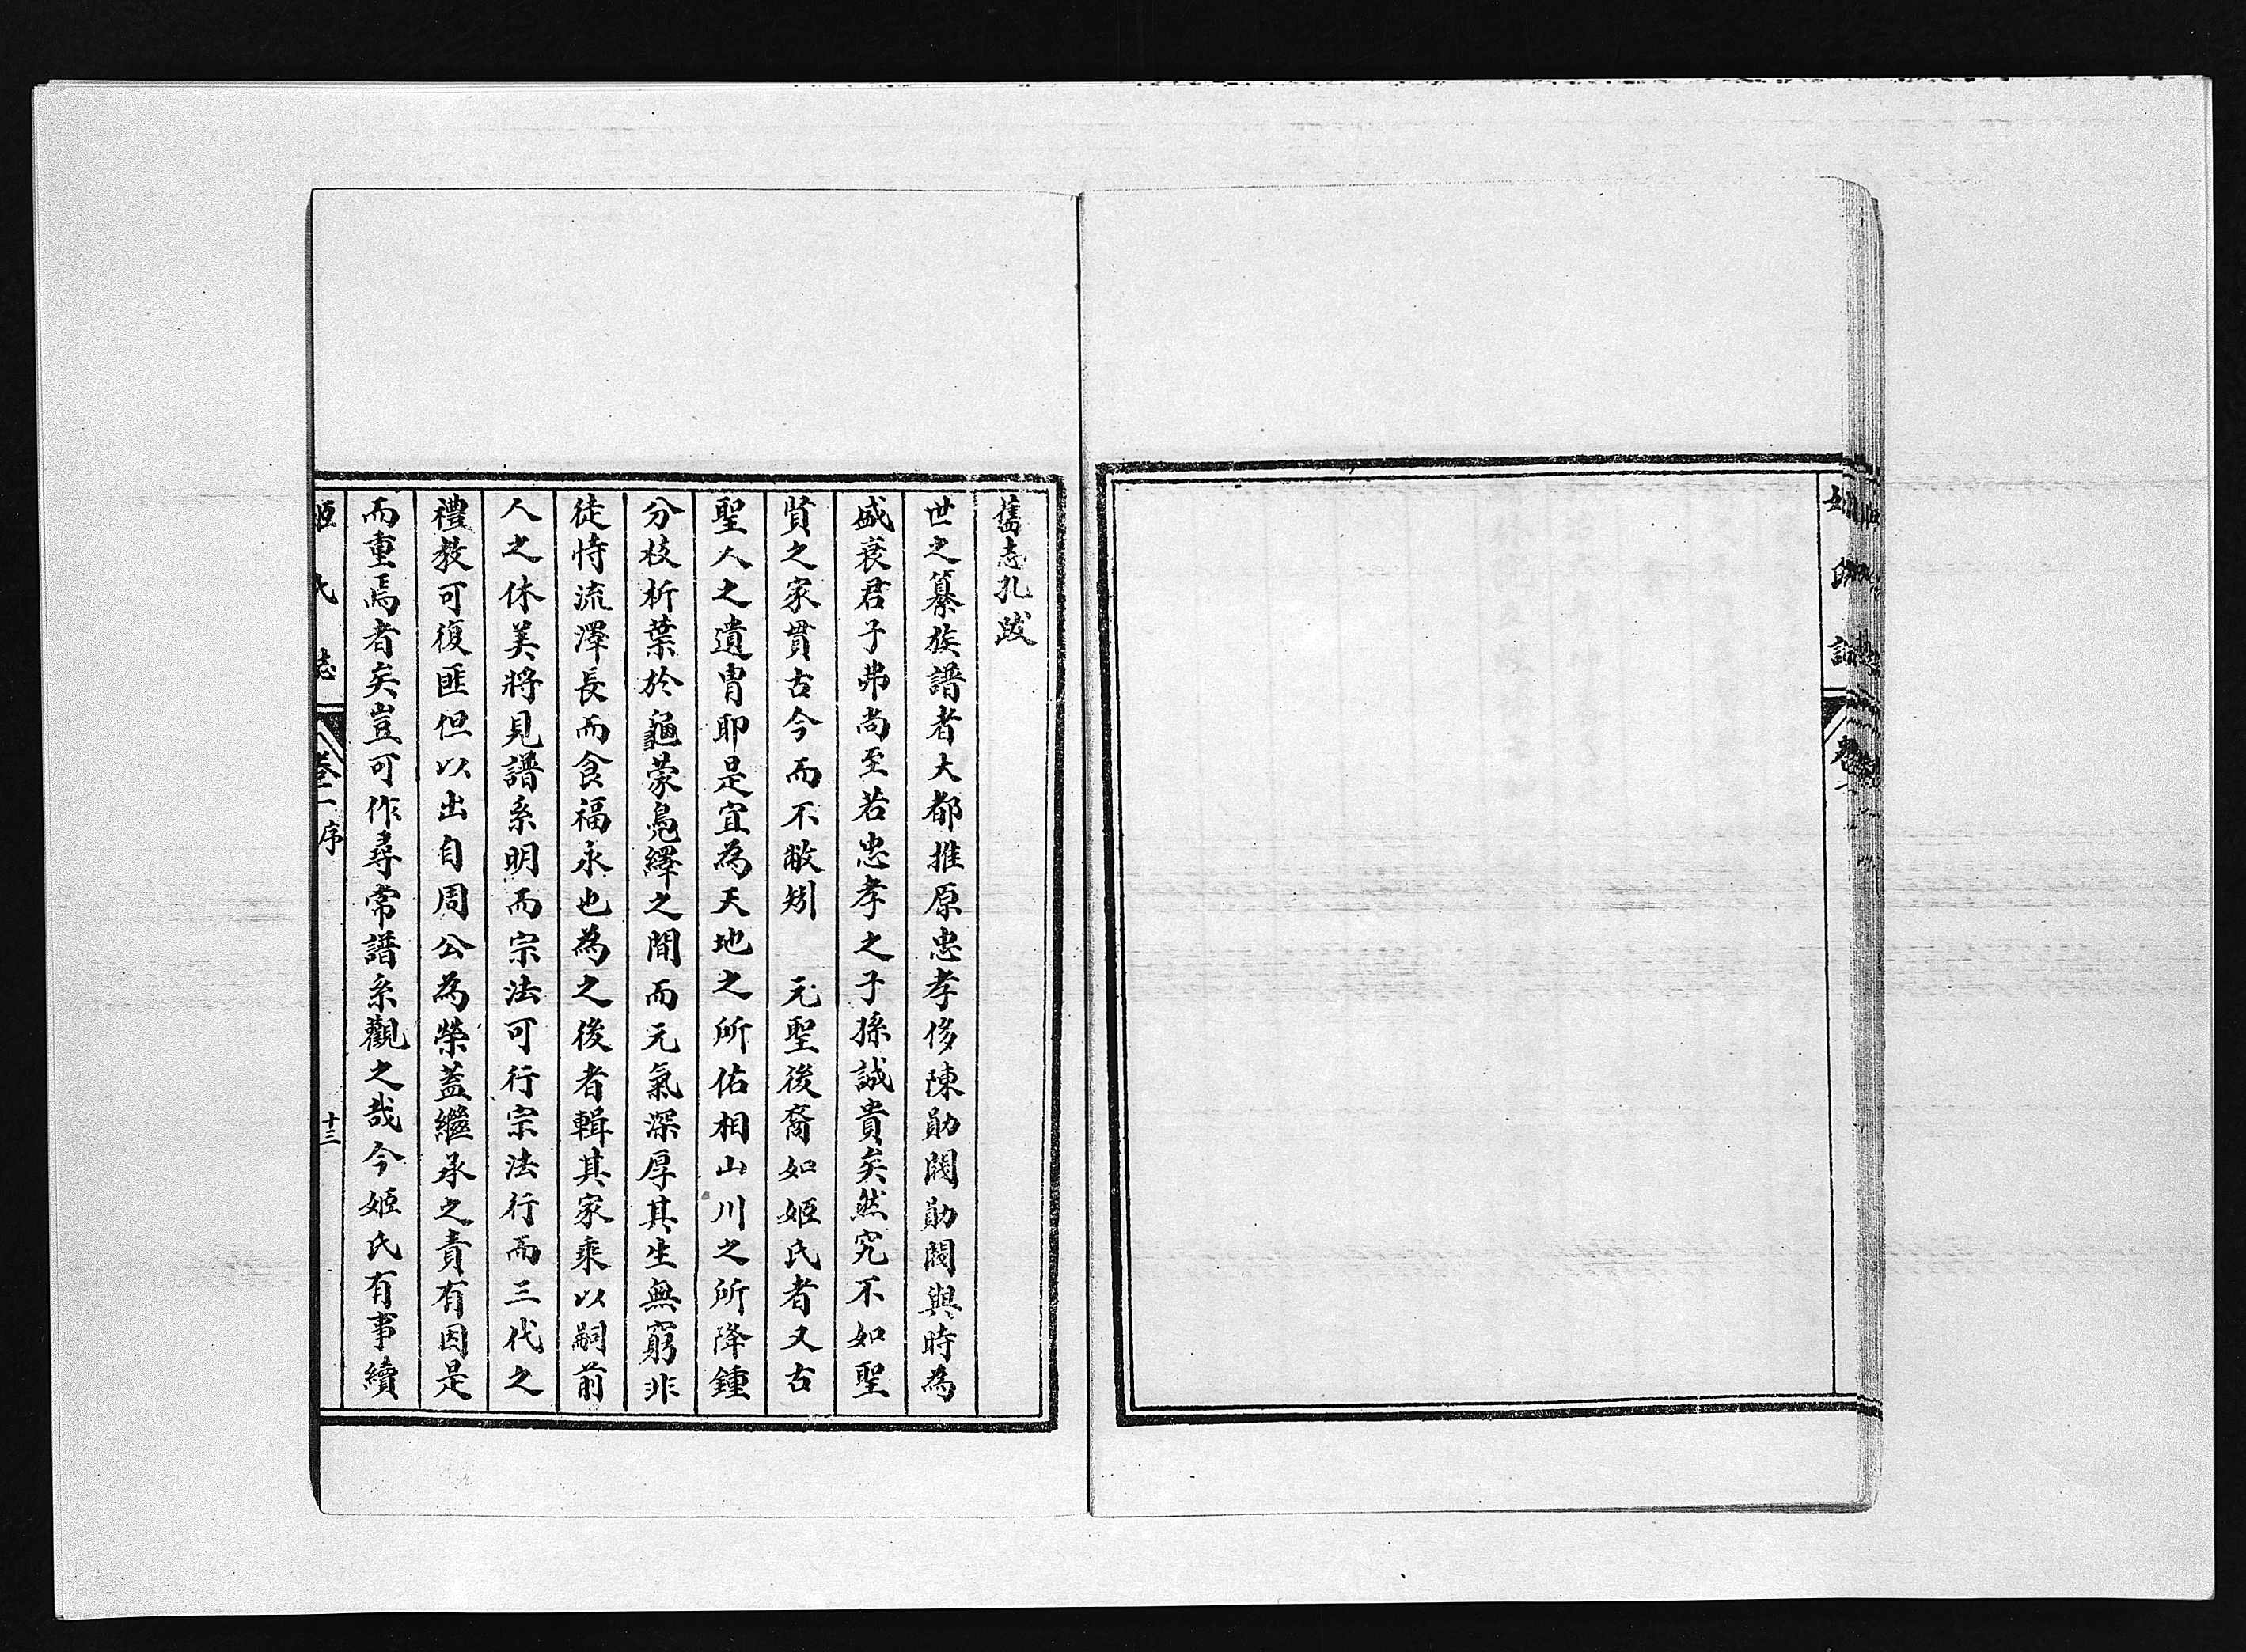 舊志孔跋
世之纂族譜者大都推原忠孝侈陳勛閥勛閥與時為
盛衰君子弗尚至若忠孝之子孫誠貴矣然究不如聖
賢之家貫古今而不敝矧　元聖後裔如姬氏者又古
聖人之遺胄耶是宜為天地之所佑相山川之所降鍾
分枝析葉於龜蒙鳧繹之間而元氣深厚其生無窮非
徒恃流澤長而食福永也為之後者輯其家乘以嗣前
人之休美將見譜系明而宗法可行宗法行而三代之
禮教可復匪但以出自周公為榮蓋繼承之責有因是
而重焉者矣豈可作尋常譜系觀之哉今姬氏有事續
姬氏志　卷二　序　十三